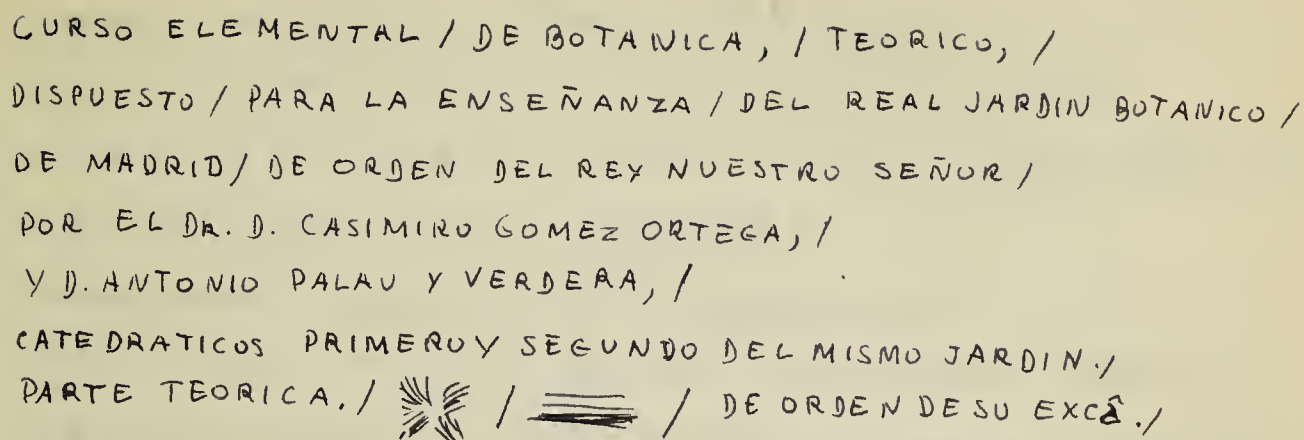 CURSO ELEMENTAL / DE BOTANICA, / TEORICO, /
DISPUESTO / PARA LA ENSEÑANZA / DEL REAL JARDIN BOTANICO /
DE MADRID / DE ORDEN DEL REY NUESTRO SEÑOR /
POR EL DR. D. CASIMIRO GOMEZ ORTEGA, /
Y D. ANTONIO PALAU Y VERDERA, /
CATEDRATICOS PRIMERO Y SEGUNDO DEL MISMO JARDIN. /
PARTE TEORICA. / / / DE ORDEN DE SU EXCÂ. /